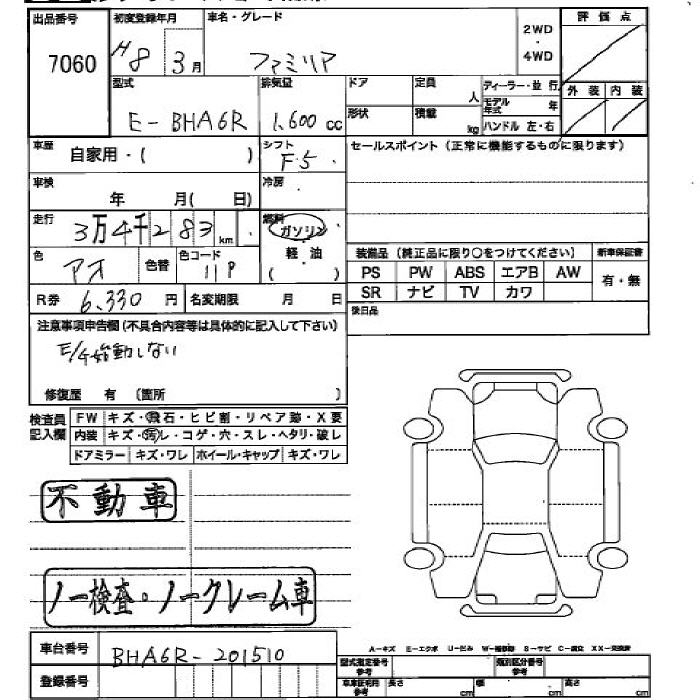 出品番号 初度登録年月 車名・グレード 2WD・4WD 評価点
7060 H8 3月 ファミリア
型式 排気量 ドア 定員 人 ディーラー・並行 外装 内装
E-BHA6R 1,600cc 形状 積載 kg モデル年式 年 ハンドル 左・右
車歴 自家用・( ) シフト F5 セールスポイント(正常に機能するものに限ります)
車検 年 月( 日) 冷房
走行 3万4千283km 燃料 ガソリン
色 アオ 色替 色コード 11P 軽・油 ( ) 装備品(純正品に限り○をつけてください) 新車保証書
PS PW ABS エアB AW 有・無
R券 6,330円 名変期限 月 日 SR ナビ TV カワ
注意事項申告欄(不具合内容等は具体的に記入して下さい) 後日品
E/g始動しない
修復歴 有 (箇所 )
検査員記入欄 FW キズ・飛石・ヒビ割・リペア跡・X要
内装 キズ・汚レ・コゲ・穴・スレ・ヘタリ・破レ
ドアミラー キズ・ワレ ホイール・キャップ キズ・ワレ
不動車
ノー検査・ノークレーム車
車台番号 BHA6R-201510 A-キズ E-エクボ U-凹み W-補修跡 S-サビ C-腐食 XX-交換済
型式指定番号 参考 類別区分番号 参考
登録番号 車庫証明用 参考 長さ cm 幅 cm 高さ cm